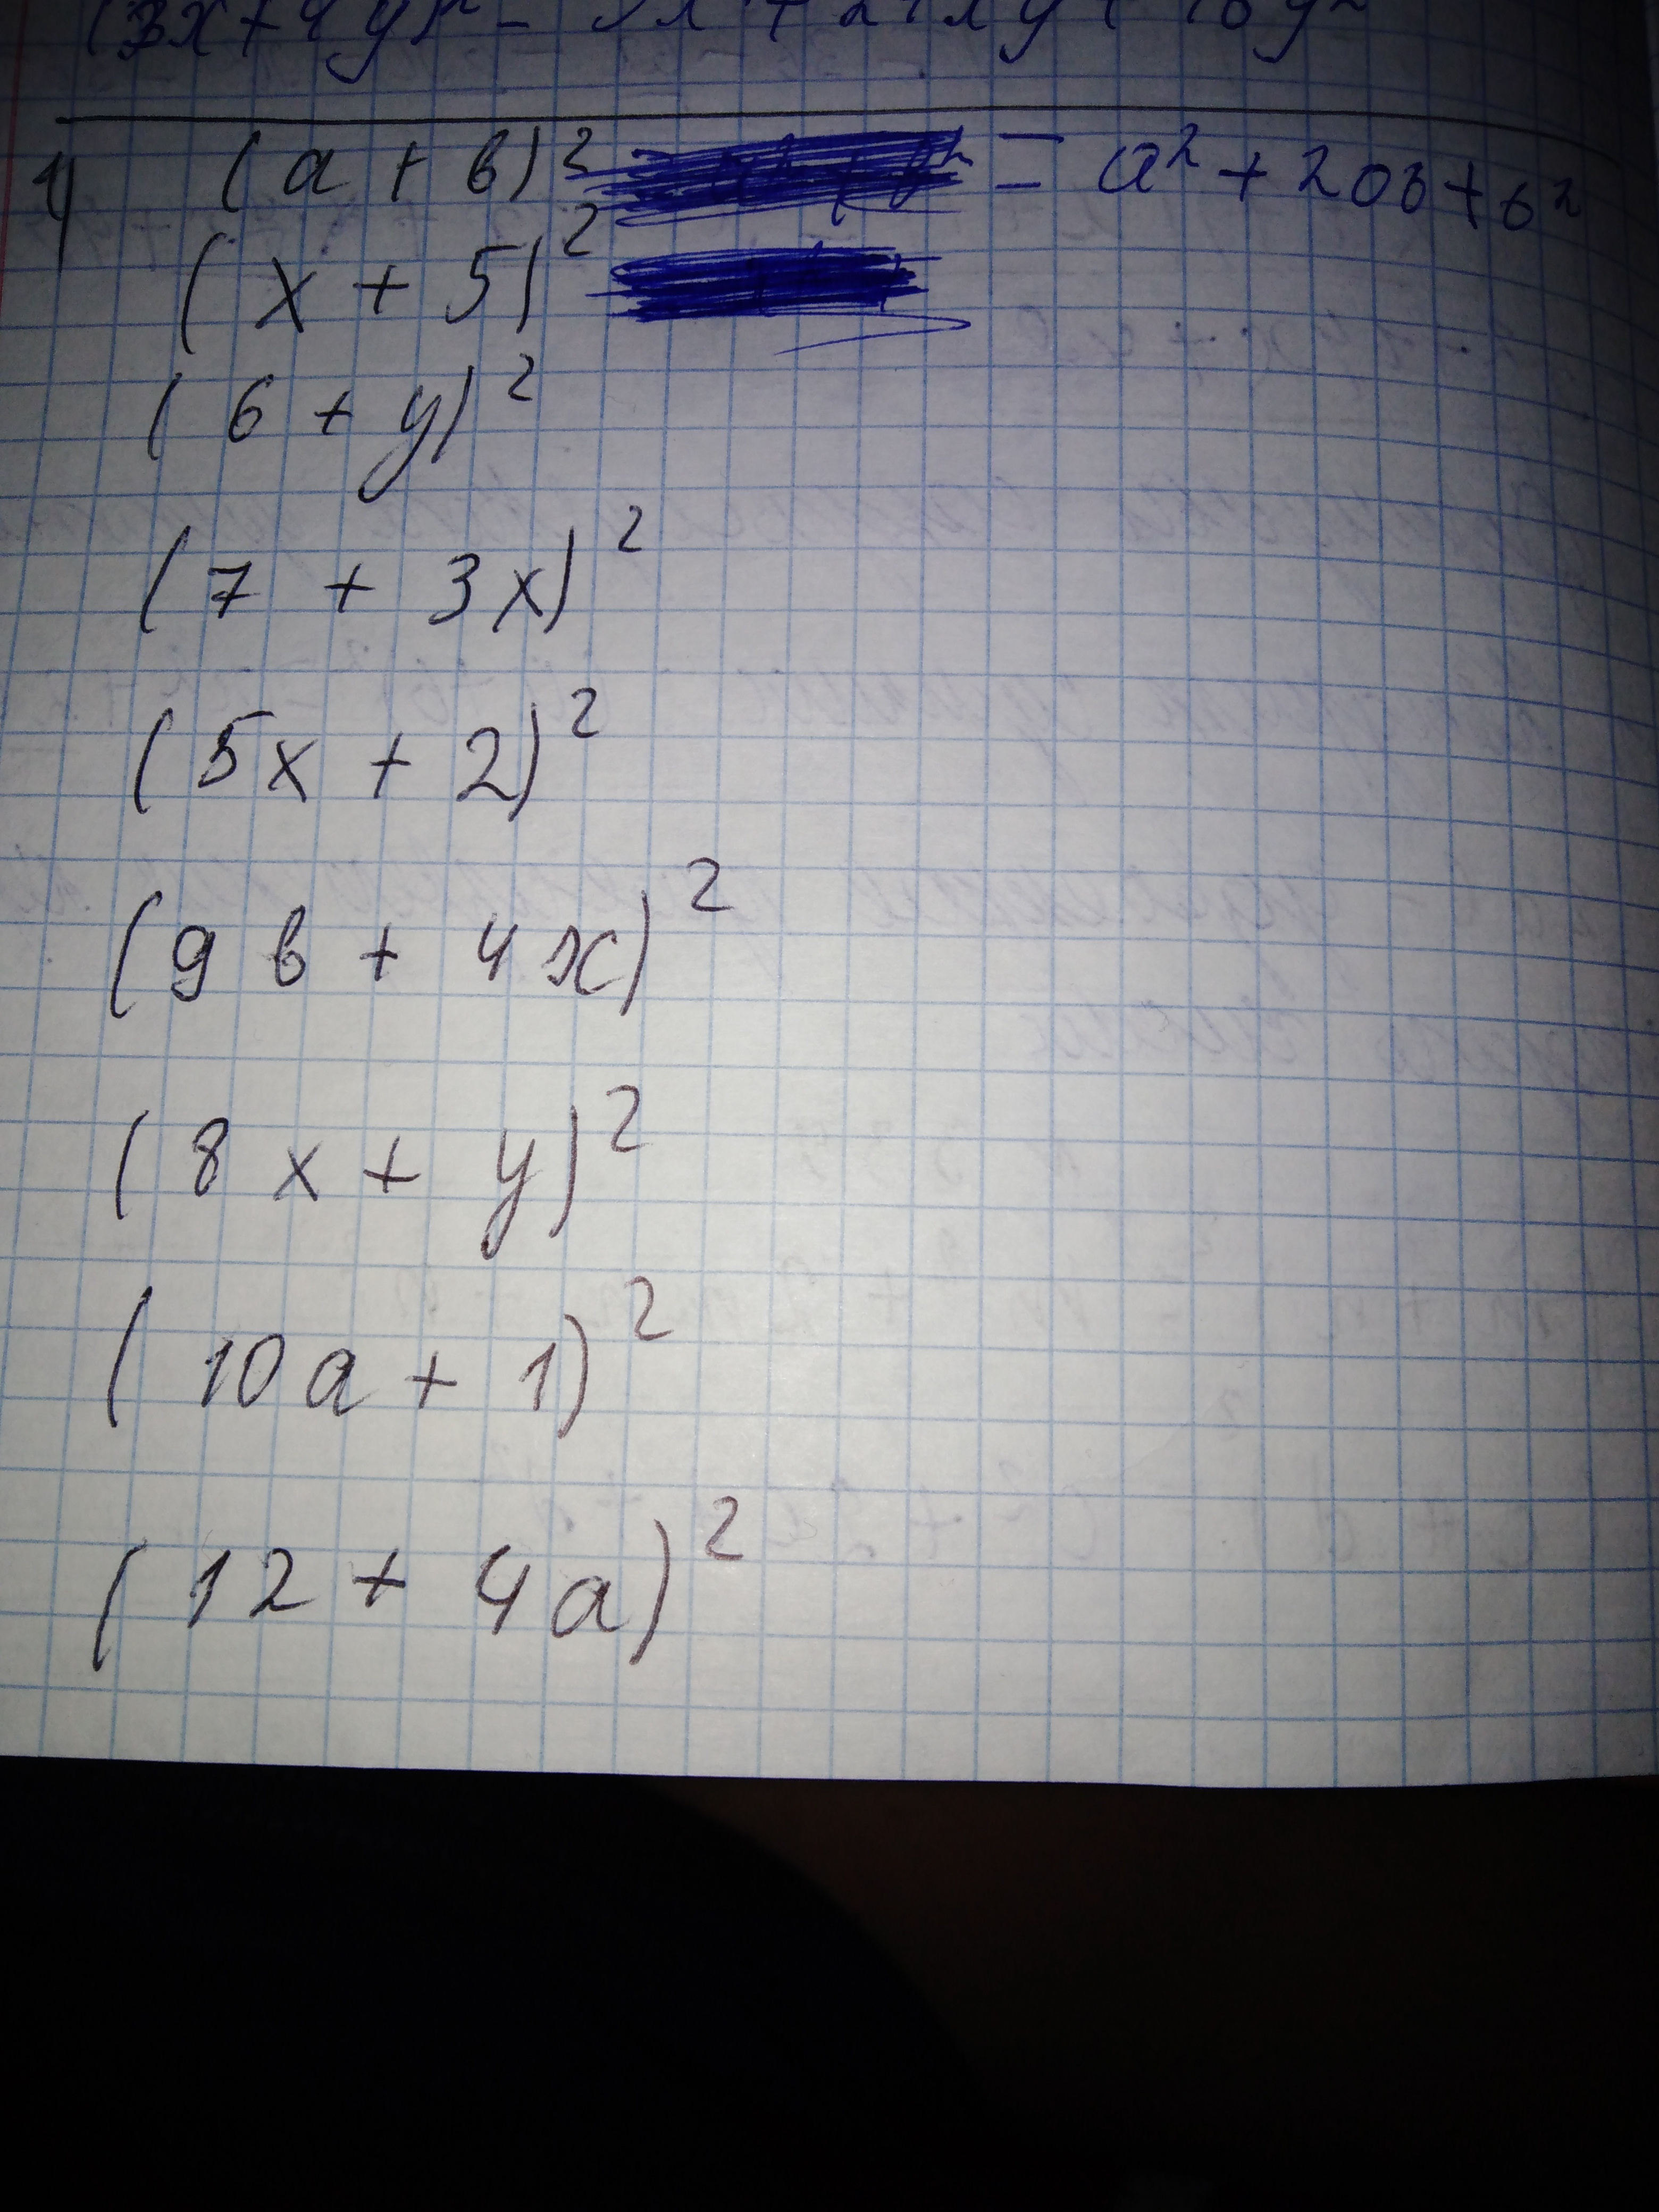 (3x+4y)² = 9x² + 24xy + 16y²
1) (a + b)² = a² + 2ab + b²
(x + 5)²
(6 + y)²
(7 + 3x)²
(5x + 2)²
(9b + 4x)²
(8x + y)²
(10a + 1)²
(12 + 4a)²